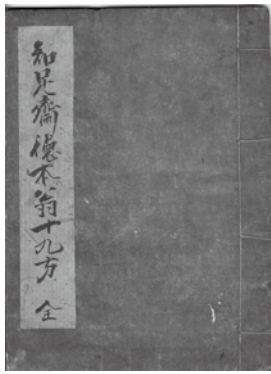 知足齋德本翁十九方 全